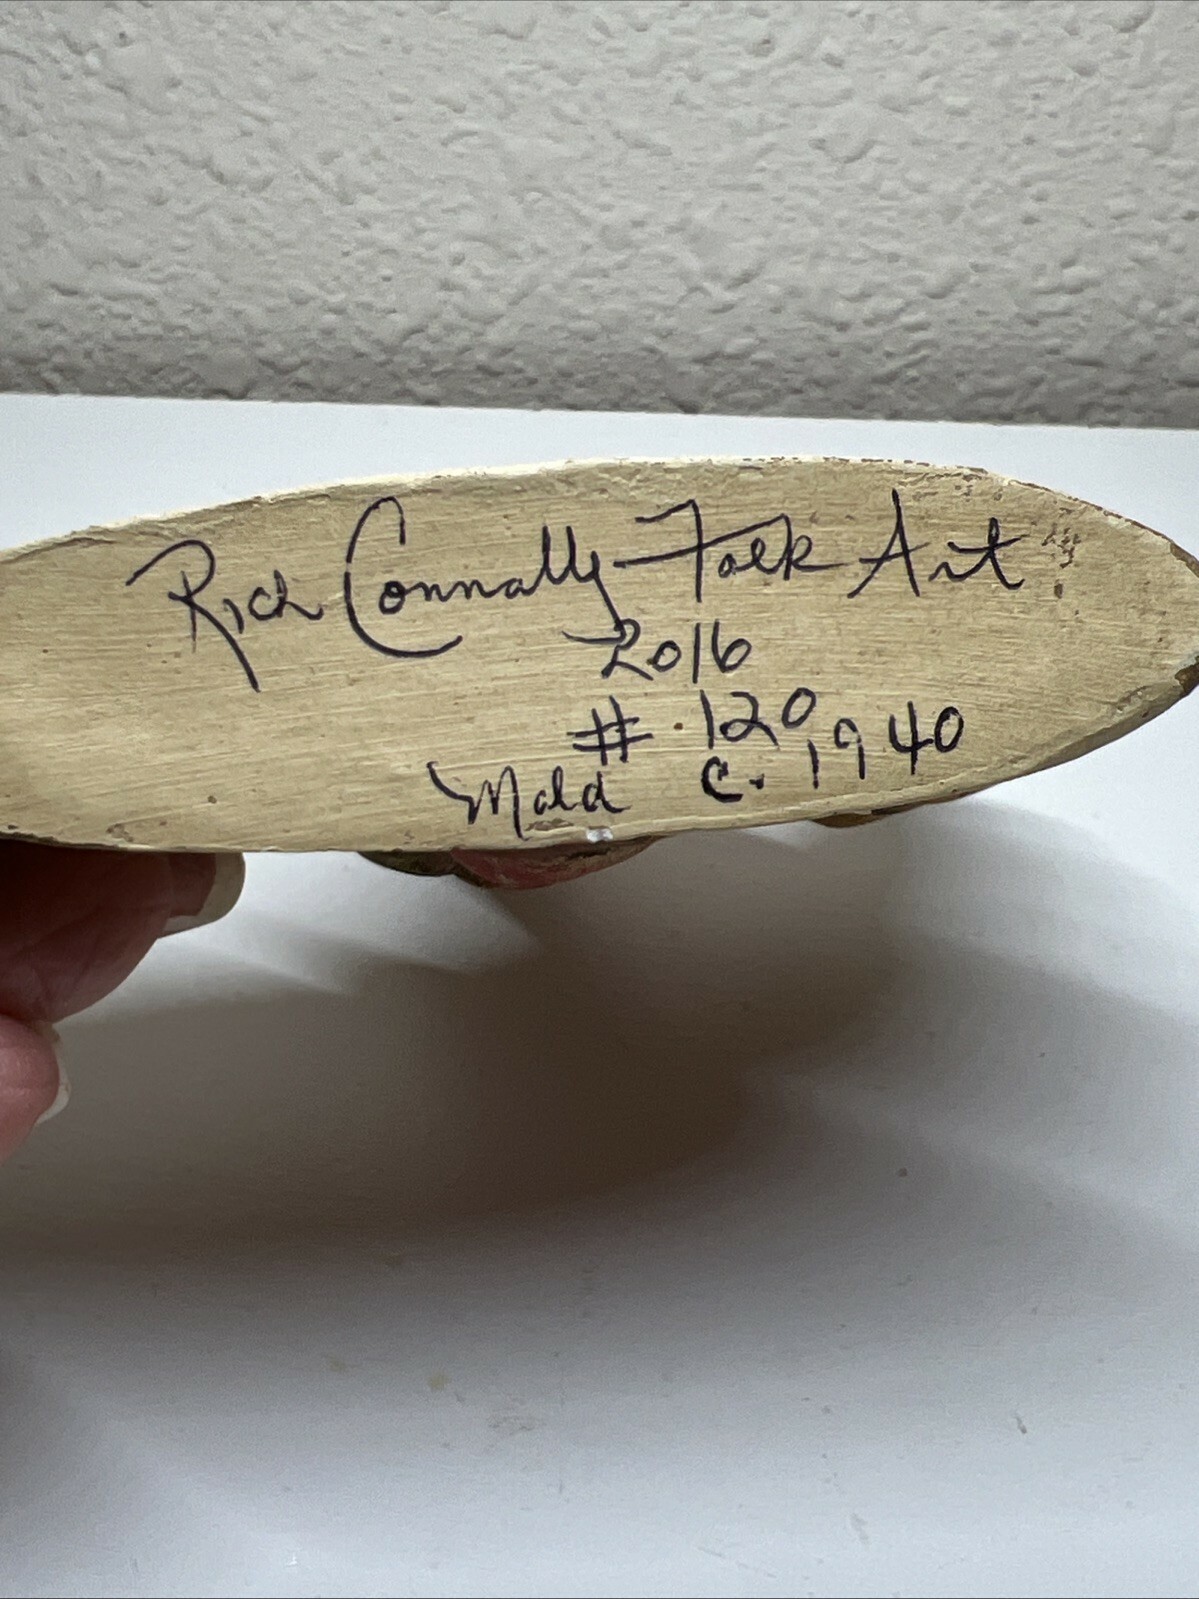 Rich Connally Folk Art
2016
# 120
Mold c. 1940